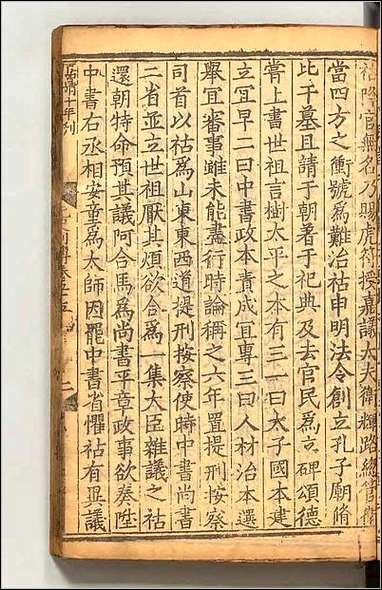 祜降官無名乃賜虎符授嘉議大夫衛輝路總管衛
當四方之衝號爲難治祜申明法令創立孔子廟脩
比干墓且請于朝著于祀典及去官民爲立碑頌德
嘗上書世祖言樹太平之本有三一曰太子國本建
立宜早二曰中書政本責成宜專三曰人材治本選
舉宜審事雖未能盡行時論稱之六年置提刑按察
司首以祜爲山東東西道提刑按察使時中書尚書
二省並立世祖厭其煩欲合爲一集大臣雜議之祜
還朝特命預其議阿合馬爲尚書平章政事欲奏陞
中書右丞相安童爲太師因罷中書省懼祜有異議
十年刋